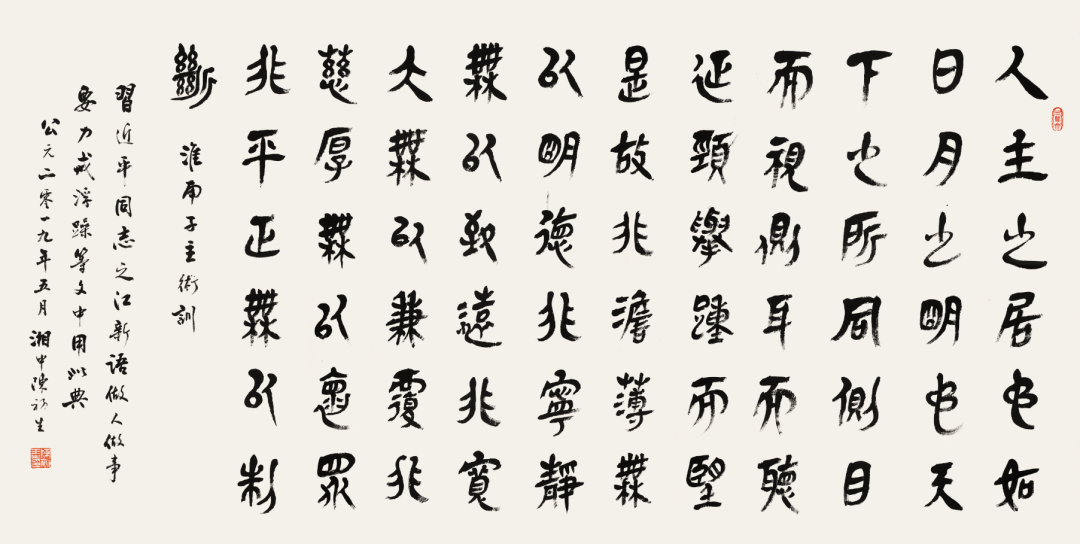 人主之居也如
日月之明也天
下之所同側目
而視側耳而聽
延頸舉踵而望
是故非澹薄無
以明德非寧靜
無以致遠非寬
大無以兼覆非
慈厚無以褱眾
非平正無以制
斷 淮南子主術訓
習近平同志之江新語做人做事
要力戒浮躁等文中用此典
公元二零一九年五月 湘中陳初生